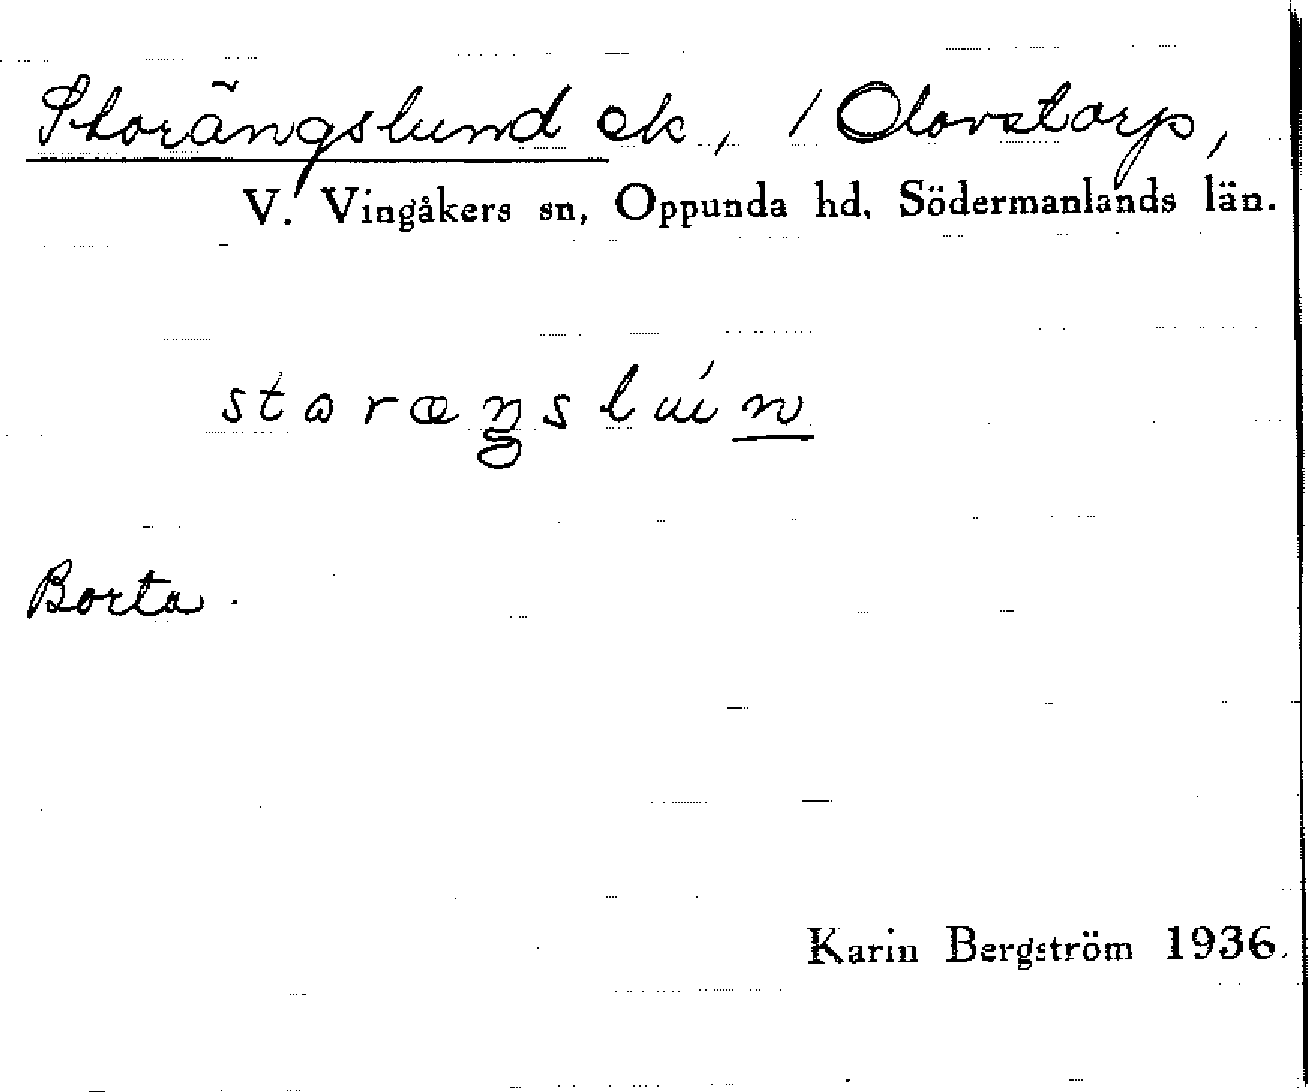 Storängslund ek, / Olovstorp,
V. Vingåkers sn, Oppunda hd, Södermanlands län.
storæŋslún
Borta.
Karin Bergström 1936.